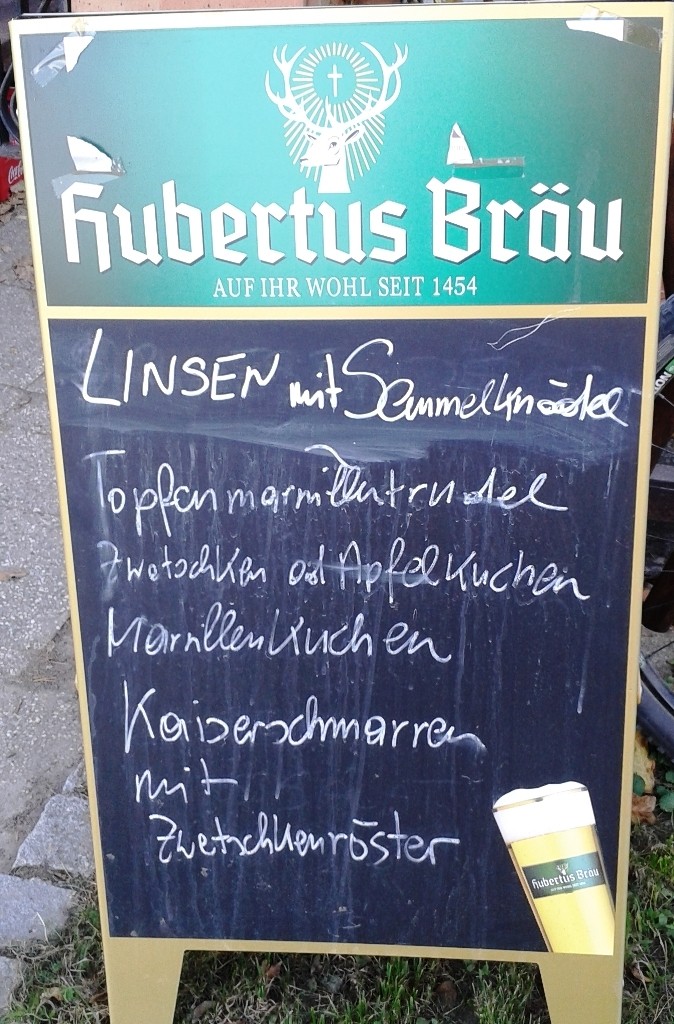 Hubertus Bräu
AUF IHR WOHL SEIT 1454
LINSEN mit Semmelknödel
Topfenmarillentrudel
Zwetschken od Apfelkuchen
Marillenkuchen
Kaiserschmarren
mit
Zwetschkenröster
Hubertus Bräu
AUF IHR WOHL SEIT 1454